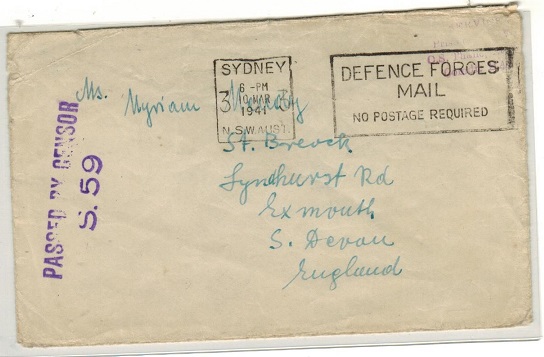 SYDNEY
6 -PM
10 MAR
1941
N.S.W. AUST.
DEFENCE FORCES
MAIL
NO POSTAGE REQUIRED
PASSED BY CENSOR
S.59
Ms. Myriam
St. Breock
Lyndhurst Rd
Exmouth
S. Devon
England